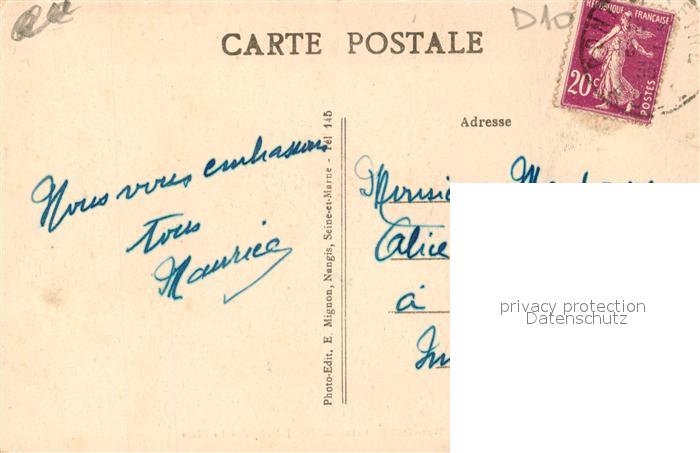 D10
CARTE POSTALE
RÉPUBLIQUE FRANÇAISE
20c
POSTES
Adresse
Nous vous embrassons
tous
Maurice
Photo-Edit. E. Mignon, Nangis, Seine-et-Marne - Tél 145
Monsieur
à
privacy protection
Datenschutz